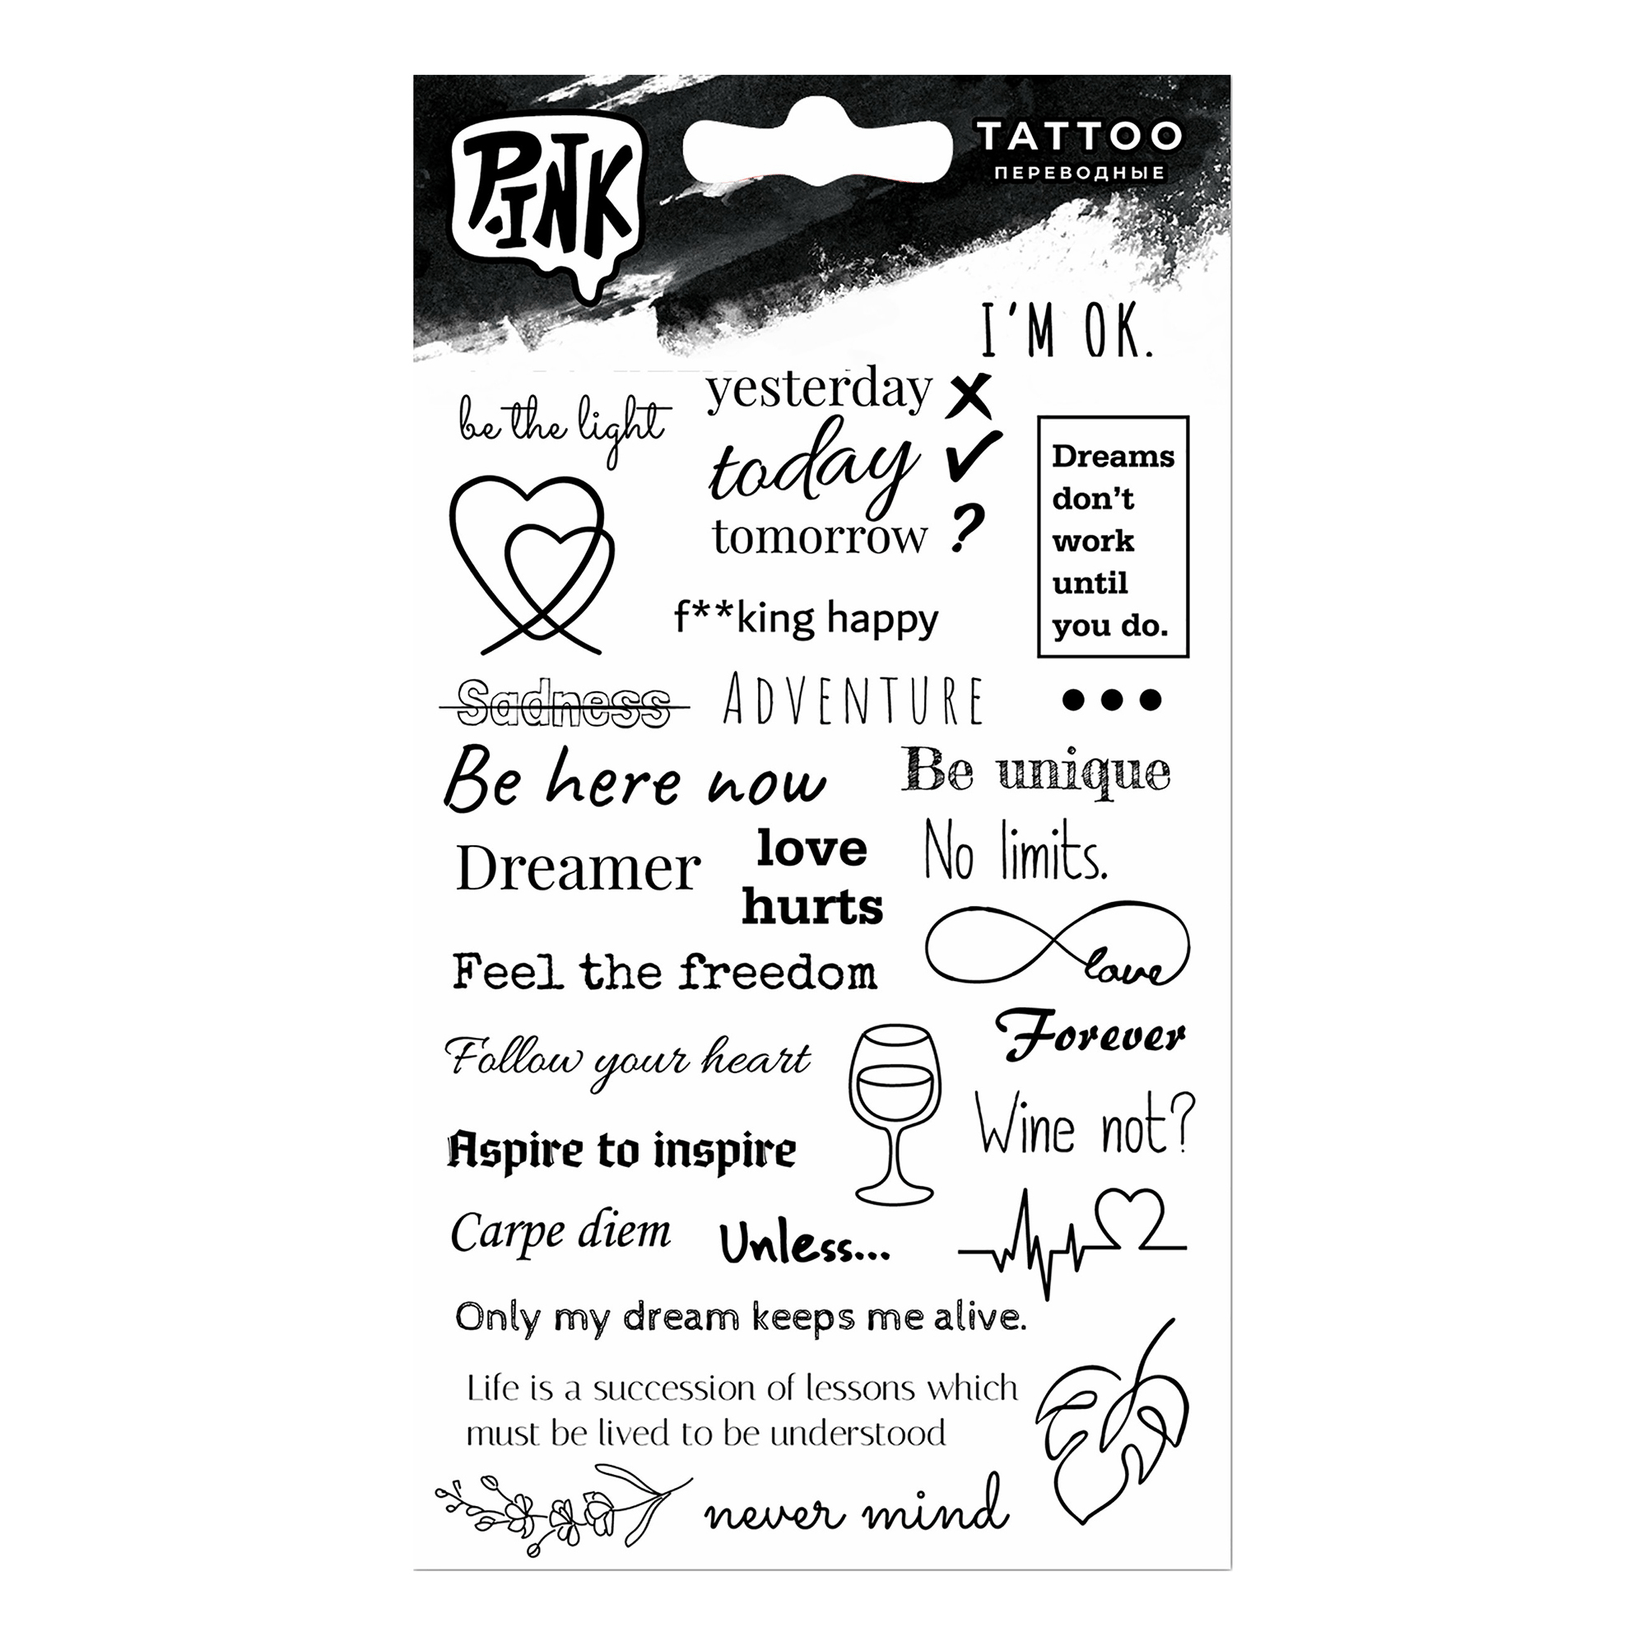 P.INK
TATTOO
ПЕРЕВОДНЫЕ
I'M OK.
be the light
yesterday
today
tomorrow ?
Dreams
don't
work
until
you do.
f**king happy
Sadness
ADVENTURE
•••
Be here now
Be unique
Dreamer
love
hurts
No limits.
love
Feel the freedom
Forever
Follow your heart
Wine not?
Aspire to inspire
Carpe diem
Unless...
Only my dream keeps me alive.
Life is a succession of lessons which
must be lived to be understood
never mind